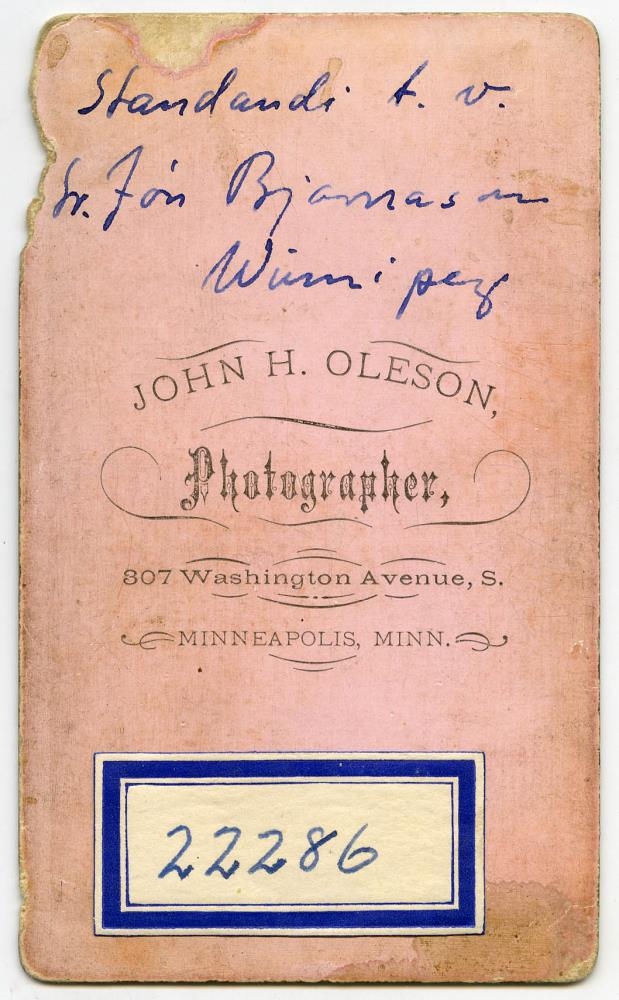 Standandi t. v.
Sr. Jón Bjarnason
Winnipeg
JOHN H. OLESON,
Photographer,
307 Washington Avenue, S.
MINNEAPOLIS, MINN.
22286